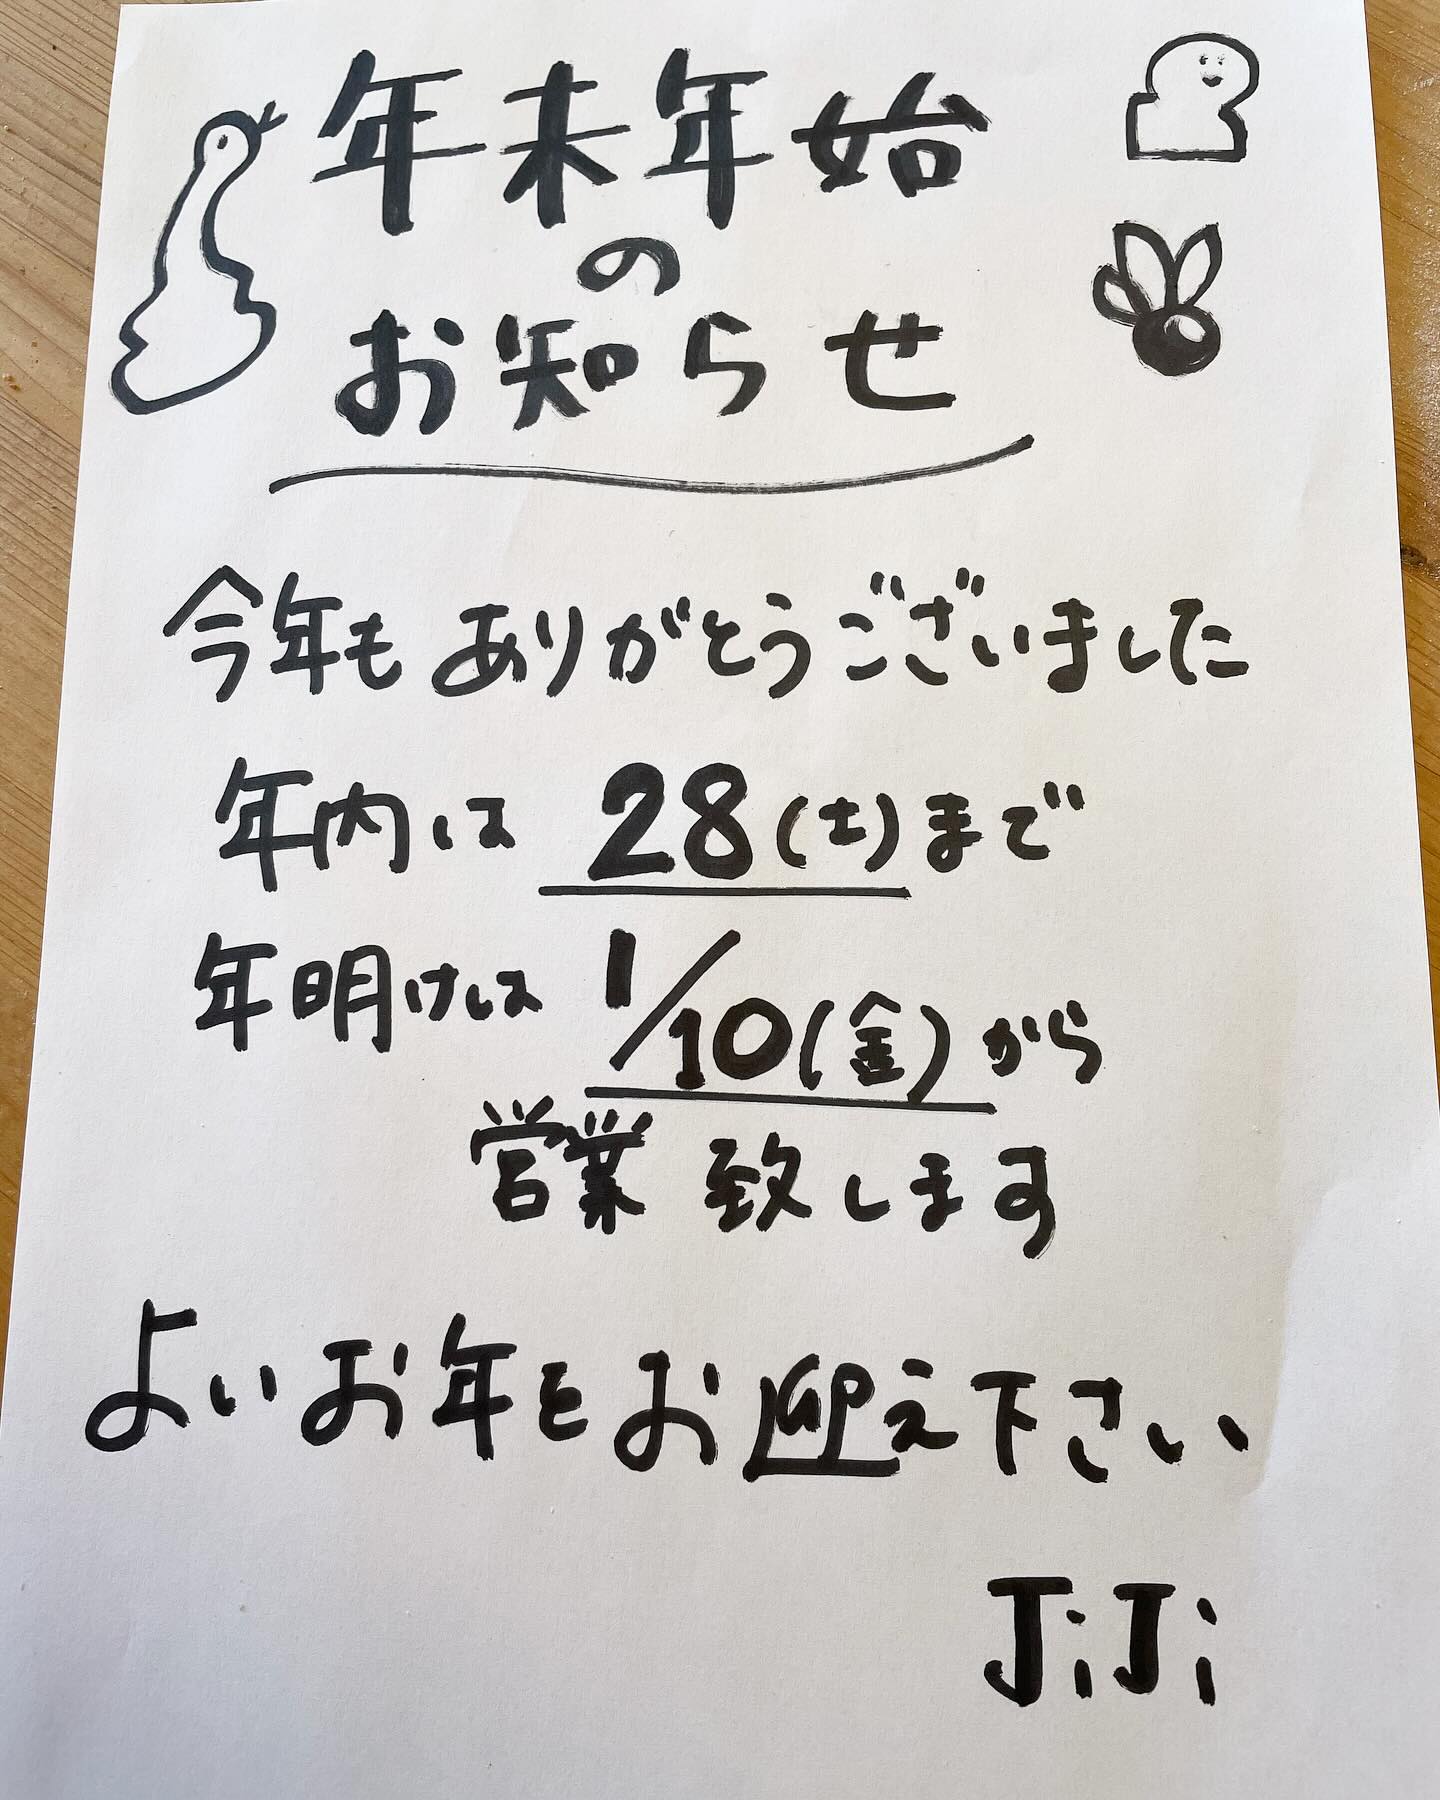 年末年始
の
お知らせ
今年もありがとうございました
年内は 28(土)まで
年明けは 1/10(金)から
営業致します
よいお年をお迎え下さい
JiJi